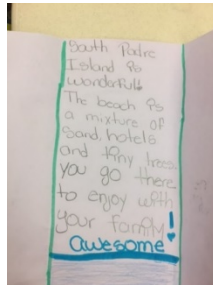 South Padre
Island is
wonderful!
The beach is
a mixture of
Sand, hotels
and tiny trees.
you go there
to enjoy with
your family!
awesome